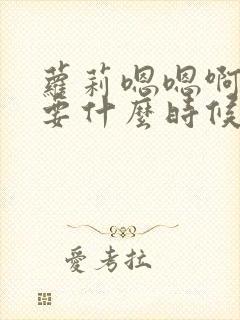 蘿莉嗯嗯啊
要什麼時候
愛考拉